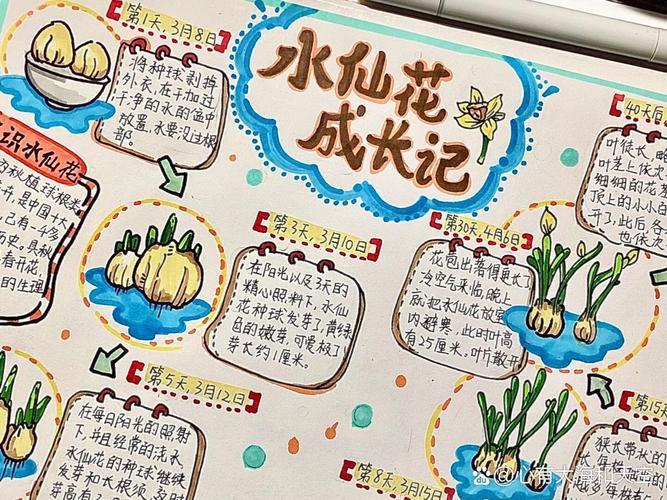 水仙花
成长记
第1天,3月8日
将种球剥掉
外衣,在于加过
干净的水的盆中
放置,水要没过根
部。
识水仙花
秋植球根类
是中国十大
己有一千多
史。具秋
春开花,
的生理
第3天,3月10日
在阳光以及3天的
精心照料下,水仙
花种球发芽了,黄绿
色的嫩芽,可爱极了
芽长约1厘米。
第5天,3月12日
在每日阳光的照射
下,并且经常的浇水
水仙花的种球继续
发芽和长根须,及时
第8天,3月15日
第30天,4月6日
花苞出落得更长了
冷空气来临,晚上
就把水仙花放室
内避寒,此时叶高
有25厘米,叶片散开
40天后
叶使长,
叶茎上
细细的花
顶上的小小
开了,此后,各
也依次
第15
狭长带状的